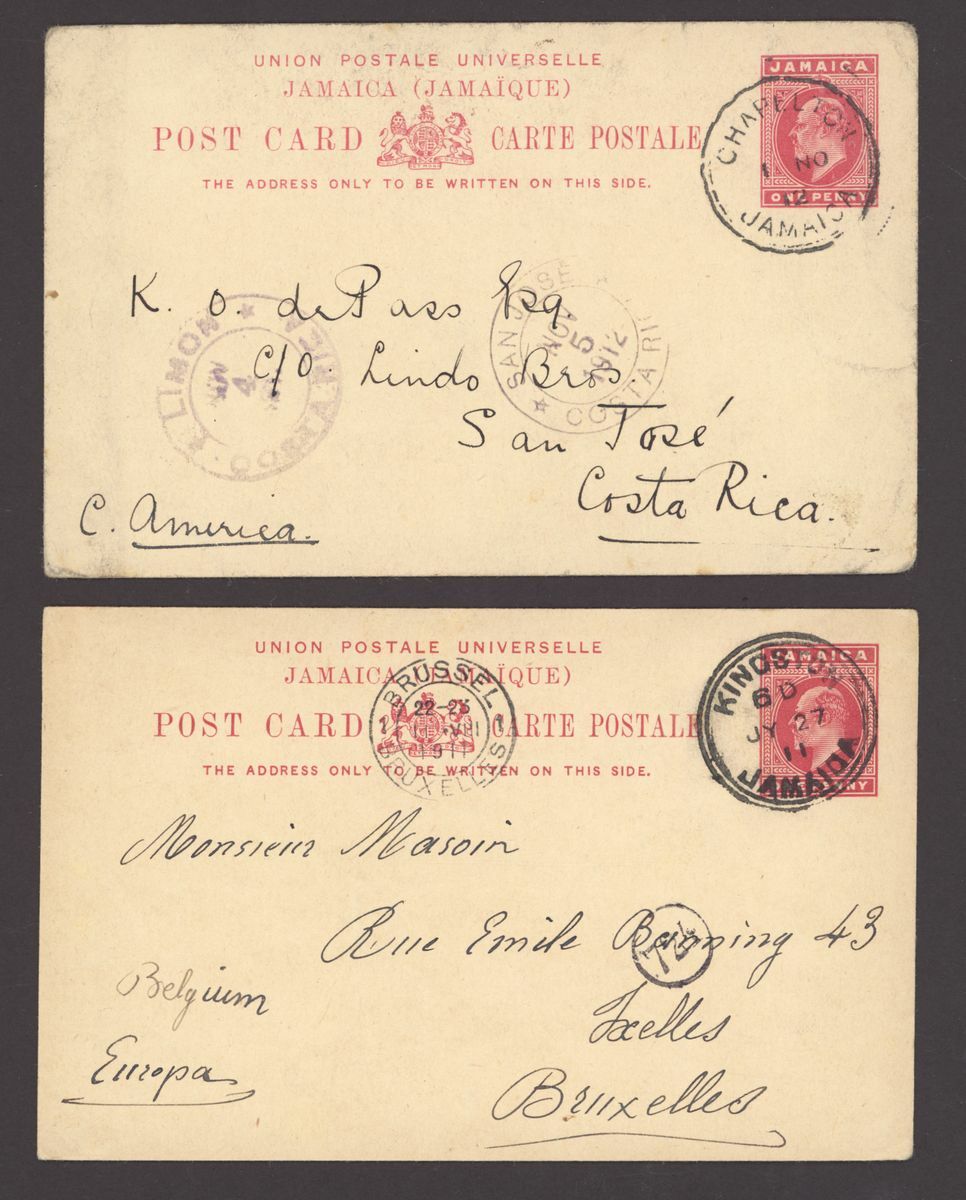 UNION POSTALE UNIVERSELLE
JAMAICA (JAMAÏQUE)
POST CARD CARTE POSTALE
THE ADDRESS ONLY TO BE WRITTEN ON THIS SIDE.
JAMAICA
ONE PENNY
CHAPELTON
1 NO
12
JAMAICA
K. O. de Pass Esq.
C/O. Lindo Bros.
San José
Costa Rica.
C. America.
LIMON
4
COSTA RICA
SAN JOSE
NOV
5
1912
COSTA RI
UNION POSTALE UNIVERSELLE
JAMAICA (JAMAÏQUE)
POST CARD CARTE POSTALE
THE ADDRESS ONLY TO BE WRITTEN ON THIS SIDE.
JAMAICA
PENNY
KINGSTON
6 D
JY 27
11
JAMAICA
BRUSSEL
22-23
1 VIII 1
1911
BRUXELLES
Monsieur Masoin
Rue Emile Banning 43
Ixelles
Bruxelles
Belgium
Europa